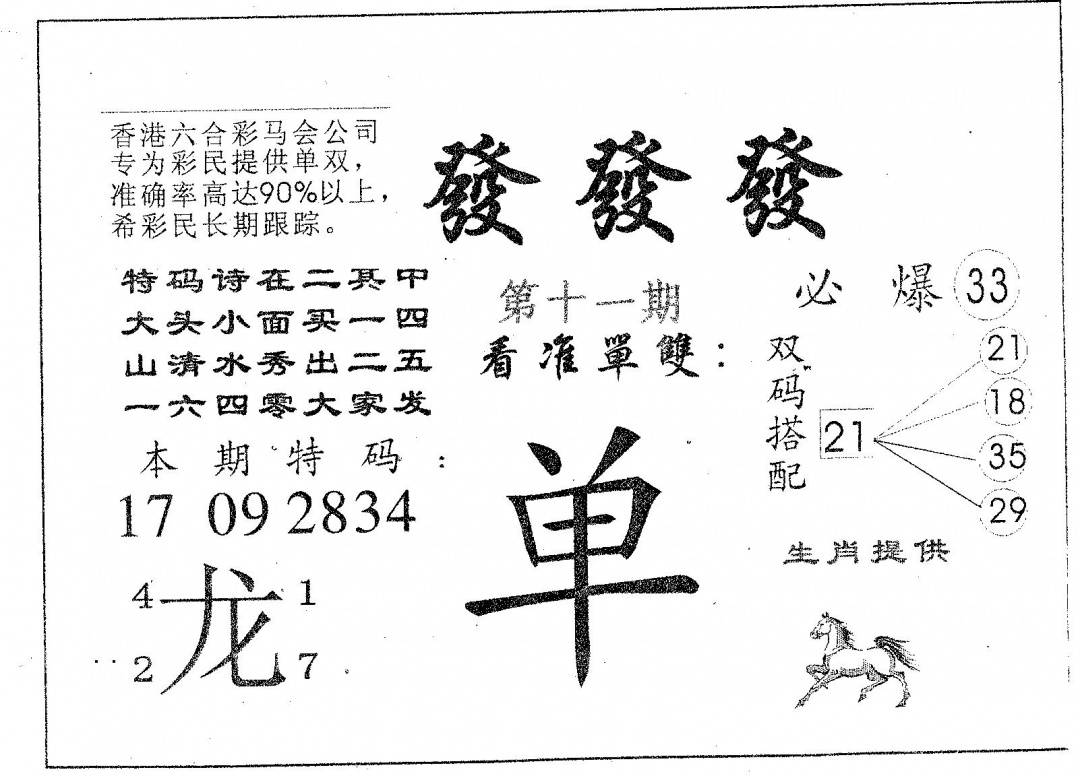 香港六合彩马会公司
专为彩民提供单双，
准确率高达90%以上，
希彩民长期跟踪。
發 發 發
特码诗在二其中
大头小面买一四
山清水秀出二五
一六四零大家发
第十一期
看准單雙：
必 爆 33
双码搭配
21
21
18
35
29
本期特码：
17 09 2834
单
生肖提供
4 龙 1
2 7